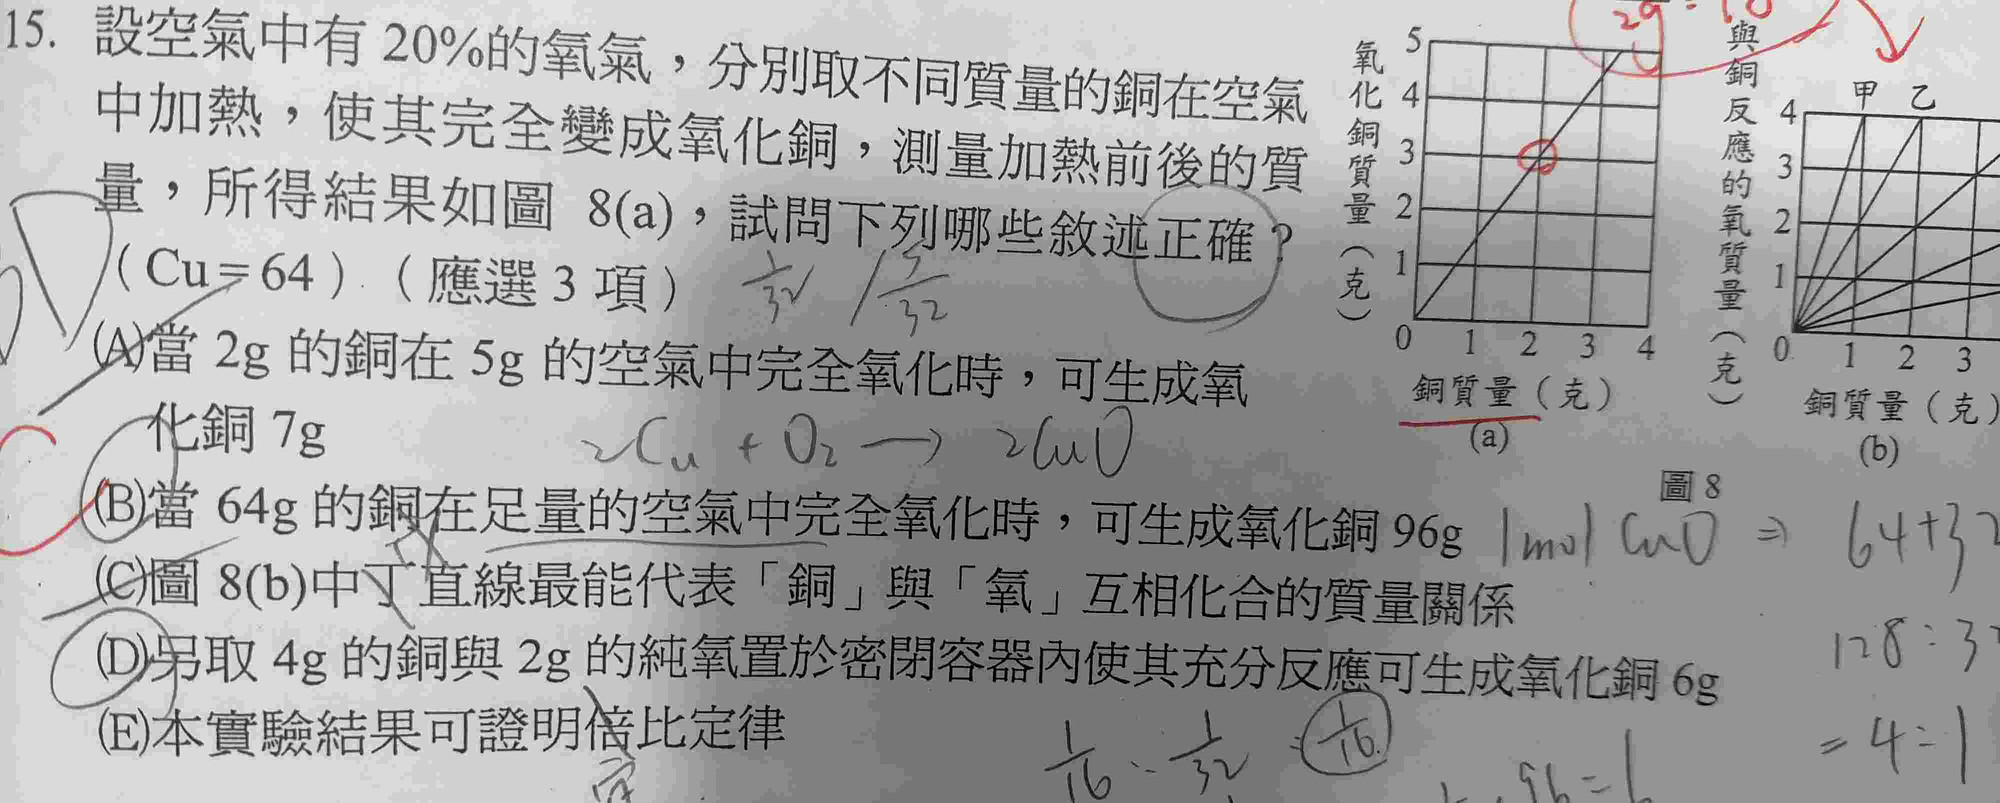 15. 設空氣中有 20%的氧氣，分別取不同質量的銅在空氣
中加熱，使其完全變成氧化銅，測量加熱前後的質
量，所得結果如圖 8(a)，試問下列哪些敘述正確？
（Cu＝64）（應選 3 項）
(A)當 2g 的銅在 5g 的空氣中完全氧化時，可生成氧
化銅 7g
2Cu + O₂ → 2CuO
(B)當 64g 的銅在足量的空氣中完全氧化時，可生成氧化銅 96g
1mol CuO ⇒ 64+32
(C)圖 8(b)中丁直線最能代表「銅」與「氧」互相化合的質量關係
(D)另取 4g 的銅與 2g 的純氧置於密閉容器內使其充分反應可生成氧化銅 6g
(E)本實驗結果可證明倍比定律
定
1/32
1/16 : 1/32
1/16
128:3
=4:1
氧化銅質量（克）
5
4
3
2
1
0 1 2 3 4
銅質量（克）
(a)
與銅反應的氧質量（克）
甲 乙
4
3
2
1
0 1 2 3
銅質量（克）
(b)
圖 8